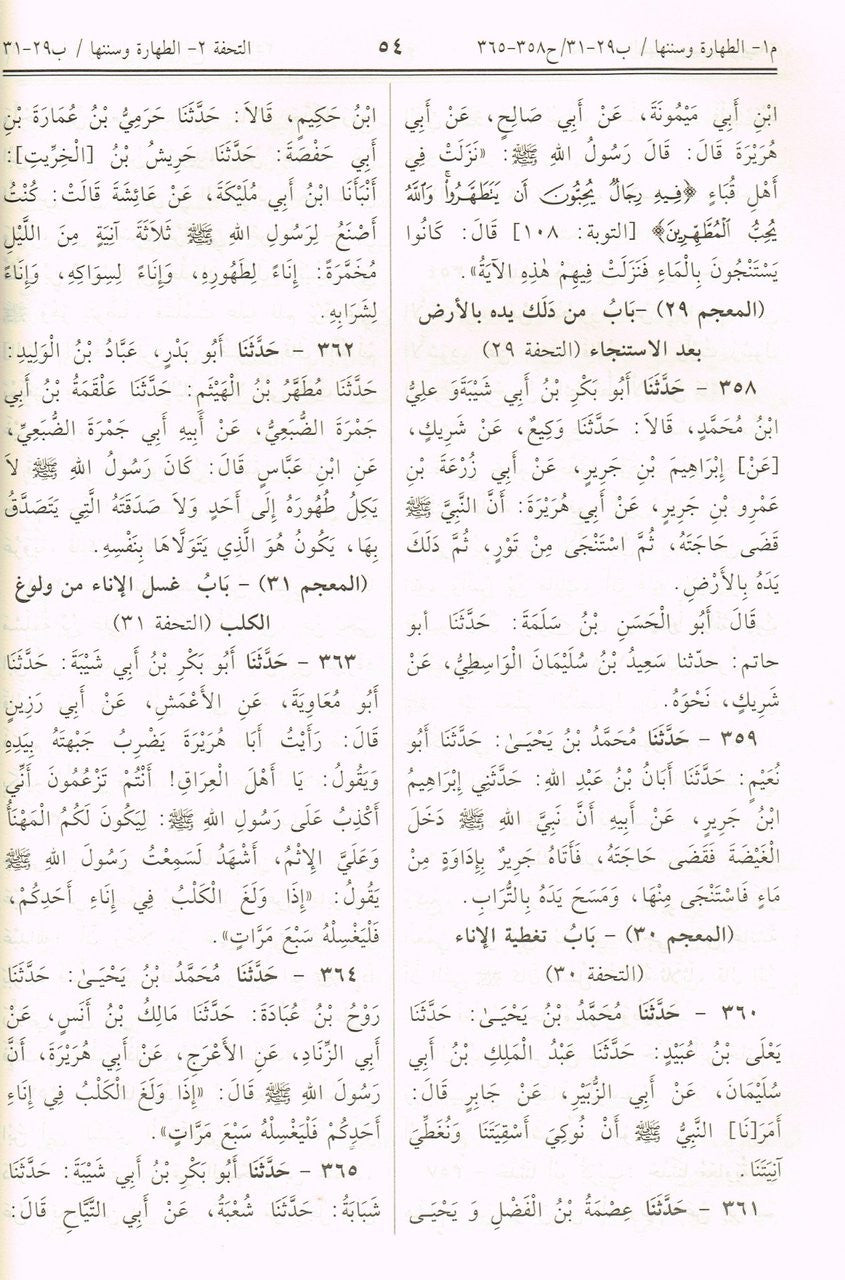 م١- الطهارة وسننها / ب٢٩-٣١/ح٣٥٨-٣٦٥
٥٤
التحفة ٢- الطهارة وسننها / ب٢٩-٣١
ابْنِ أَبِي مَيْمُونَةَ، عَنْ أَبِي صَالِحٍ، عَنْ أَبِي
هُرَيْرَةَ قَالَ: قَالَ رَسُولُ اللهِ ﷺ: «نَزَلَتْ فِي
أَهْلِ قُبَاءٍ ﴿فِيهِ رِجَالٌ يُحِبُّونَ أَن يَتَطَهَّرُوا۟ وَٱللَّهُ
يُحِبُّ ٱلْمُطَّهِّرِينَ﴾ [التوبة: ١٠٨] قَالَ: كَانُوا
يَسْتَنْجُونَ بِالْمَاءِ فَنَزَلَتْ فِيهِمْ هٰذِهِ الآيَةُ».
(المعجم ٢٩) -بَابُ من دَلَك يده بالأرض
بعد الاستنجاء (التحفة ٢٩)
٣٥٨ - حَدَّثَنَا أَبُو بَكْرِ بْنُ أَبِي شَيْبَةَ وَ عَلِيُّ
ابْنُ مُحَمَّدٍ، قَالاَ: حَدَّثَنَا وَكِيعٌ، عَنْ شَرِيكٍ،
[عَنْ] إِبْرَاهِيمَ بْنِ جَرِيرٍ، عَنْ أَبِي زُرْعَةَ بْنِ
عَمْرِو بْنِ جَرِيرٍ، عَنْ أَبِي هُرَيْرَةَ: أَنَّ النَّبِيَّ ﷺ
قَضَى حَاجَتَهُ، ثُمَّ اسْتَنْجَى مِنْ تَوْرٍ، ثُمَّ دَلَكَ
يَدَهُ بِالأَرْضِ.
قَالَ أَبُو الْحَسَنِ بْنُ سَلَمَةَ: حَدَّثَنَا أبو
حاتم: حدّثنا سَعِيدُ بْنُ سُلَيْمَانَ الْوَاسِطِيُّ، عَنْ
شَرِيكٍ، نَحْوَهُ.
٣٥٩ - حَدَّثَنَا مُحَمَّدُ بْنُ يَحْيَىٰ: حَدَّثَنَا أَبُو
نُعَيْمٍ: حَدَّثَنَا أَبَانُ بْنُ عَبْدِ اللهِ: حَدَّثَنِي إِبْرَاهِيمُ
ابْنُ جَرِيرٍ، عَنْ أَبِيهِ أَنَّ نَبِيَّ اللهِ ﷺ دَخَلَ
الْغَيْضَةَ فَقَضَى حَاجَتَهُ، فَأَتَاهُ جَرِيرٌ بِإِدَاوَةٍ مِنْ
مَاءٍ فَاسْتَنْجَى مِنْهَا، وَمَسَحَ يَدَهُ بِالتُّرَابِ.
(المعجم ٣٠) - بَابُ تغطية الإناء
(التحفة ٣٠)
٣٦٠ - حَدَّثَنَا مُحَمَّدُ بْنُ يَحْيَـىٰ: حَدَّثَنَا
يَعْلَى بْنُ عُبَيْدٍ: حَدَّثَنَا عَبْدُ الْمَلِكِ بْنُ أَبِي
سُلَيْمَانَ، عَنْ أَبِي الزُّبَيْرِ، عَنْ جَابِرٍ قَالَ:
أَمَرَ[نَا] النَّبِيُّ ﷺ أَنْ نُوكِيَ أَسْقِيَتَنَا وَنُغَطِّيَ
آنِيَتَنَا.
٣٦١ - حَدَّثَنَا عِصْمَةُ بْنُ الْفَضْلِ وَ يَحْيَـى
ابْنُ حَكِيمٍ، قَالاَ: حَدَّثَنَا حَرَمِيُّ بْنُ عُمَارَةَ بْنِ
أَبِي حَفْصَةَ: حَدَّثَنَا حَرِيشُ بْنُ [الْخِرِّيتِ]:
أَنْبَأَنَا ابْنُ أَبِي مُلَيْكَةَ، عَنْ عَائِشَةَ قَالَتْ: كُنْتُ
أَصْنَعُ لِرَسُولِ اللهِ ﷺ ثَلاَثَةَ آنِيَةٍ مِنَ اللَّيْلِ
مُخَمَّرَةً: إِنَاءً لِطَهُورِهِ، وَإِنَاءً لِسِوَاكِهِ، وَإِنَاءً
لِشَرَابِهِ.
٣٦٢ - حَدَّثَنَا أَبُو بَدْرٍ، عَبَّادُ بْنُ الْوَلِيدِ:
حَدَّثَنَا مُطَهَّرُ بْنُ الْهَيْثَمِ: حَدَّثَنَا عَلْقَمَةُ بْنُ أَبِي
جَمْرَةَ الضُّبَعِيُّ، عَنْ أَبِيهِ أَبِي جَمْرَةَ الضُّبَعِيِّ،
عَنِ ابْنِ عَبَّاسٍ قَالَ: كَانَ رَسُولُ اللهِ ﷺ لاَ
يَكِلُ طُهُورَهُ إِلَى أَحَدٍ وَلاَ صَدَقَتَهُ الَّتِي يَتَصَدَّقُ
بِهَا، يَكُونُ هُوَ الَّذِي يَتَوَلَّاهَا بِنَفْسِهِ.
(المعجم ٣١) - بَابُ غسل الإناء من ولوغ
الكلب (التحفة ٣١)
٣٦٣ - حَدَّثَنَا أَبُو بَكْرِ بْنُ أَبِي شَيْبَةَ: حَدَّثَنَا
أَبُو مُعَاوِيَةَ، عَنِ الأَعْمَشِ، عَنْ أَبِي رَزِينٍ
قَالَ: رَأَيْتُ أَبَا هُرَيْرَةَ يَضْرِبُ جَبْهَتَهُ بِيَدِهِ
وَيَقُولُ: يَا أَهْلَ الْعِرَاقِ! أَنْتُمْ تَزْعُمُونَ أَنِّي
أَكْذِبُ عَلَى رَسُولِ اللهِ ﷺ: لِيَكُونَ لَكُمُ الْمَهْنَأُ
وَعَلَيَّ الإِثْمُ، أَشْهَدُ لَسَمِعْتُ رَسُولَ اللهِ ﷺ
يَقُولُ: «إِذَا وَلَغَ الْكَلْبُ فِي إِنَاءِ أَحَدِكُمْ،
فَلْيَغْسِلْهُ سَبْعَ مَرَّاتٍ».
٣٦٤ - حَدَّثَنَا مُحَمَّدُ بْنُ يَحْيَـىٰ: حَدَّثَنَا
رَوْحُ بْنُ عُبَادَةَ: حَدَّثَنَا مَالِكُ بْنُ أَنَسٍ، عَنْ
أَبِي الزِّنَادِ، عَنِ الأَعْرَجِ، عَنْ أَبِي هُرَيْرَةَ، أَنَّ
رَسُولَ اللهِ ﷺ قَالَ: «إِذَا وَلَغَ الْكَلْبُ فِي إِنَاءِ
أَحَدِكُمْ فَلْيَغْسِلْهُ سَبْعَ مَرَّاتٍ».
٣٦٥ - حَدَّثَنَا أَبُو بَكْرِ بْنُ أَبِي شَيْبَةَ: حَدَّثَنَا
شَبَابَةُ: حَدَّثَنَا شُعْبَةُ، عَنْ أَبِي التَّيَّاحِ قَالَ: